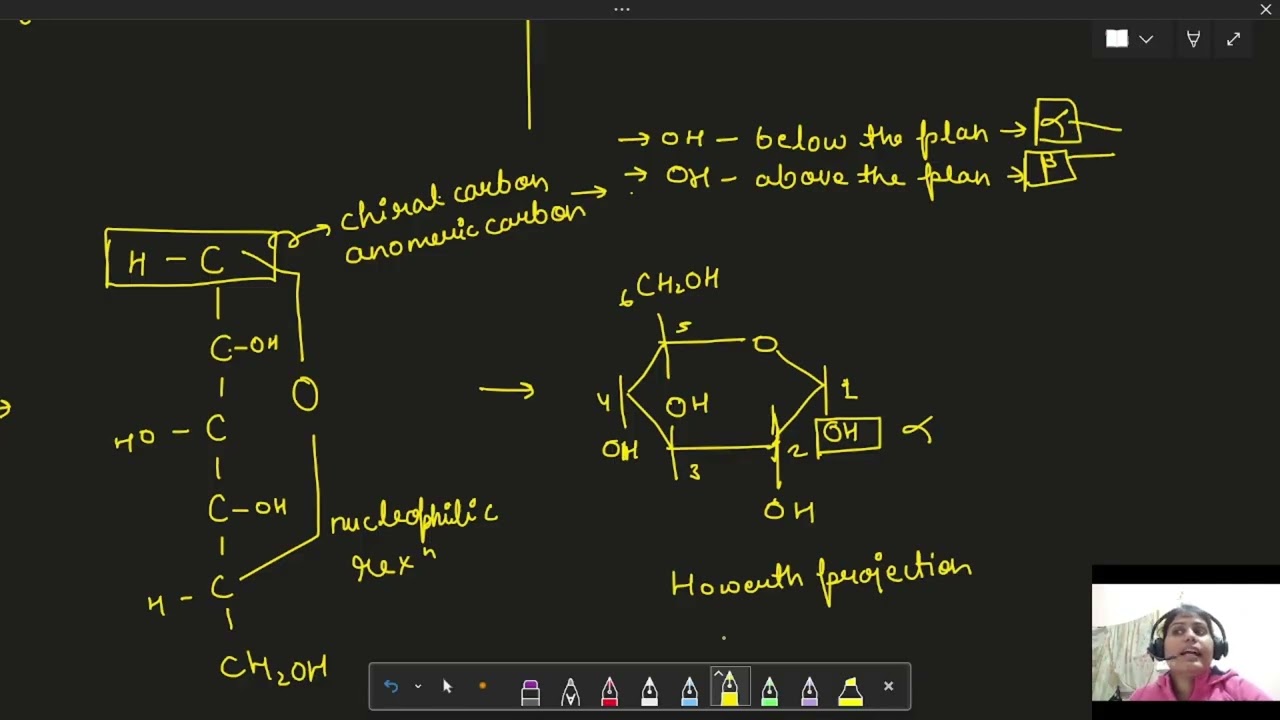 → OH – below the plan → α
→ OH – above the plan → β
chiral carbon
anomeric carbon →
H – C
C–OH
O
HO – C
C–OH
H – C
CH₂OH
nucleophilic
rexⁿ
→
6 CH₂OH
5
O
4
1
OH
OH
OH α
3
2
OH
Howerth projection